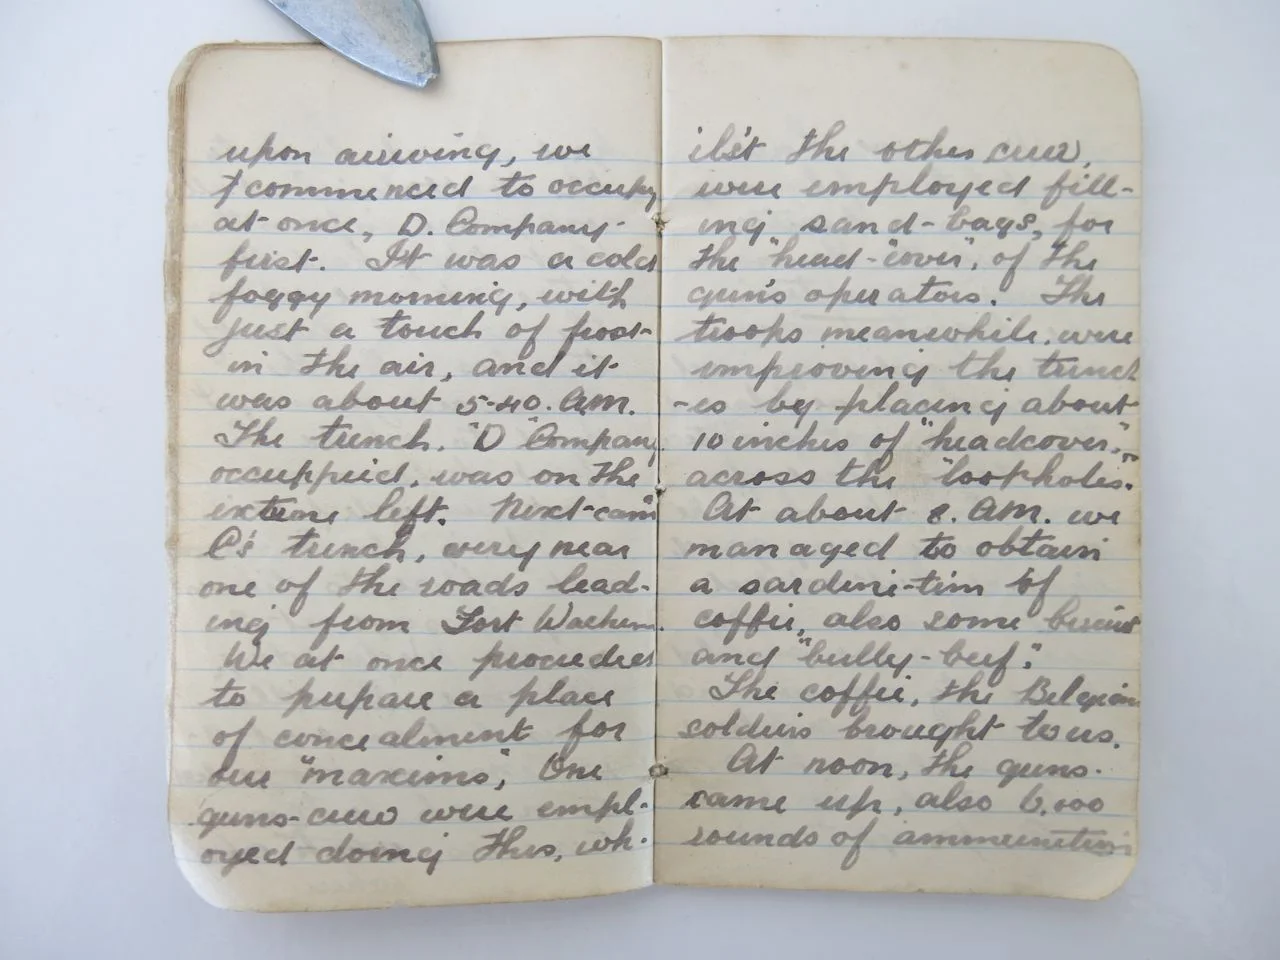 upon arriving, we
commenced to occupy
at once, D. Company
first. It was a cold
foggy morning, with
just a touch of frost
in the air, and it
was about 5-40. A.M.
The trench. "D" Company
occuppied, was on the
extreme left. Next came
C's trench, very near
one of the roads lead-
ing from Fort Waelhem.
We at once proceeded
to prepare a place
of concealment for
our "maxims", One
guns-crew were empl-
oyed doing this, wh-
ilst the other crew,
were employed fill-
ing sand-bags, for
the "head-cover", of the
gun's operators. The
troops meanwhile, were
improving the trench
-es by placing about
10 inches of "headcover",
across the "loopholes.
At about 8. A.M. we
managed to obtain
a sardine-tin of
coffee, also some biscuit
and "bully-beef".
The coffee, the Belgian
soldiers brought to us.
At noon, the guns
came up, also 6,000
rounds of ammunition